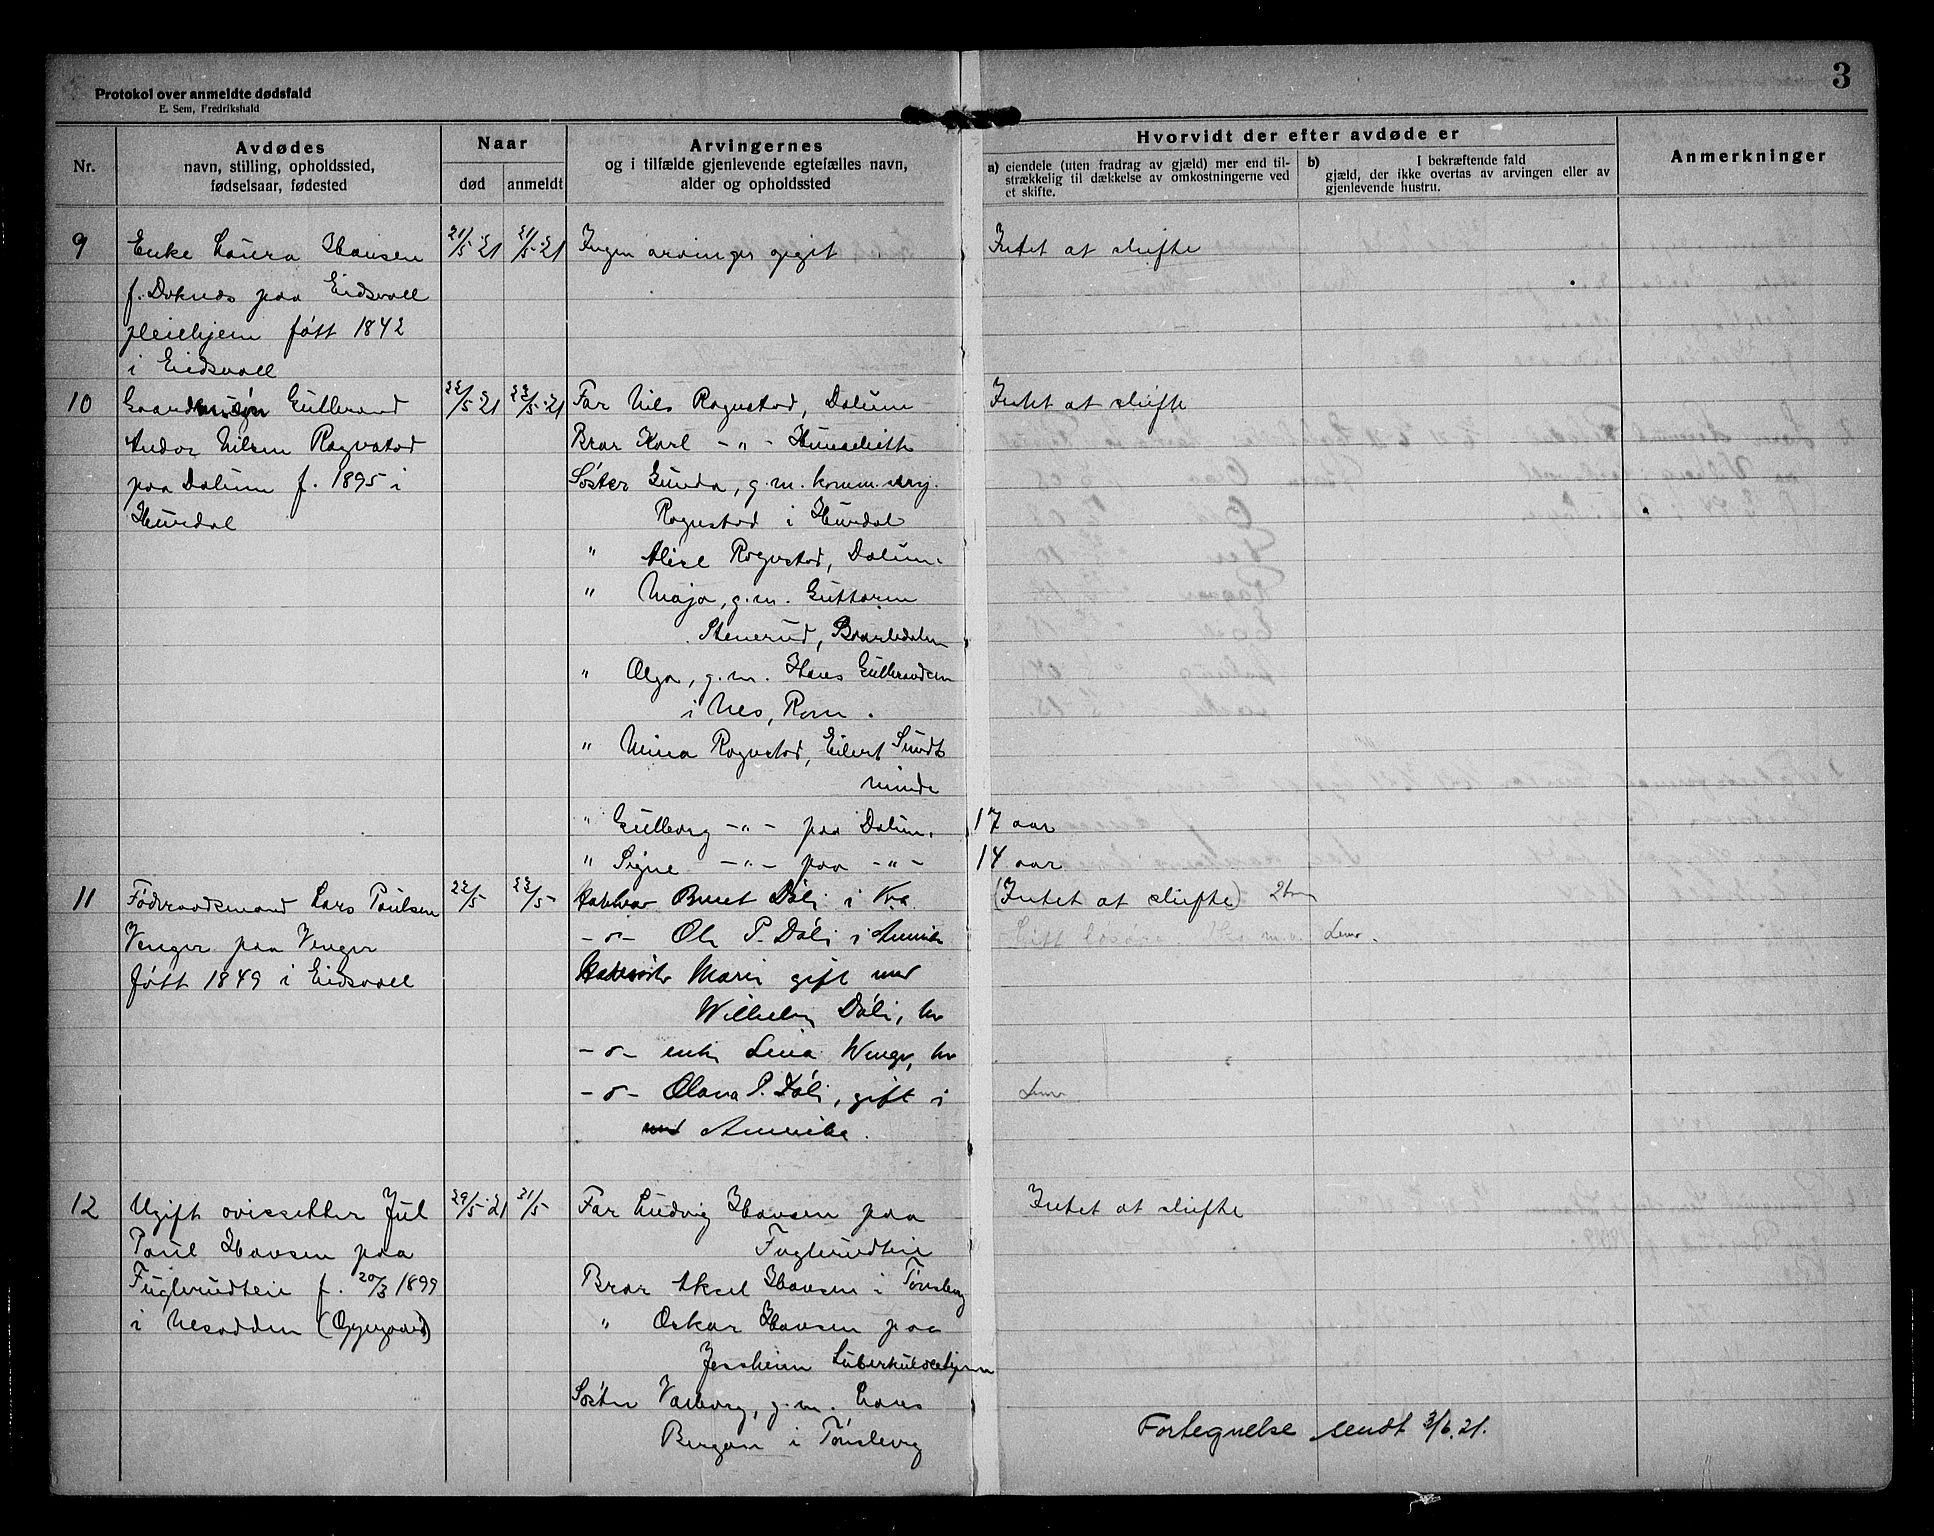 3
Protokol over anmeldte dødsfald
E. Sem, Fredrikshald
Nr.
Avdødes
navn, stilling, opholdssted,
fødselsaar, fødested
Naar
død
anmeldt
Arvingernes
og i tilfælde gjenlevende egtefælles navn,
alder og opholdssted
Hvorvidt der efter avdøde er
a) eiendele (uten fradrag av gjæld) mer end til-
strækkelig til dækkelse av omkostningerne ved
et skifte.
b) I bekræftende fald
gjæld, der ikke overtas av arvingen eller av
gjenlevende hustru.
Anmerkninger
9
Enke Laura Hansen
f. Doknes paa Eidsvoll
pleiehjem født 1842
i Eidsvoll
21/5-21
21/5-21
Ingen arvinger opgit
Intet at skifte
10
Gullbrand
Andor Nilsen Rognstad
paa Dalum f. 1895 i
Hurdal
22/5-21
22/5-21
Far Nils Rognstad, Dalum
Bror Karl -"-
Søster Gunda, g.m.
Rognstad i Hurdal
" Alise Rognstad, Dalum.
" Maja, g.m. Guttorm
Stenerud,
" Olga, g.m. Hans Gulbrandsen
i Nes, Rom.
" Mina Rognstad, Eilert Sundts
minde
" Gullborg -"- paa Dalum. 17 aar
" Signe -"- paa -"- 14 aar
Intet at skifte
11
Føderaadsmand Lars Paulsen
Venger paa Venger
født 1849 i Eidsvoll
22/5
22/5-
Halvbror Døli i Kra
-o- Ole P. Døli i Amerika
Halvsøster Marie gift med
Wilhelm Døli, her
-o- enke Lina Wenger, her
-o- Olava P. Døli, gift i
Amerika.
(Intet at skifte)
12
Ugift Jul
Paul Hansen paa
Fuglerudteie f. 20/3 1899
i Nesodden (Opegaard)
29/5-21
31/5-
Far Ludvig Hansen paa
Fuglerudteie
Bror Aksel Hansen i Tønsberg
" Oskar Hansen paa
Jessheim tuberkulosehjem
Søster Valborg, g.m. Hans
Bergan i Tønsberg
Intet at skifte
Fortegnelse sendt 3/6.21.